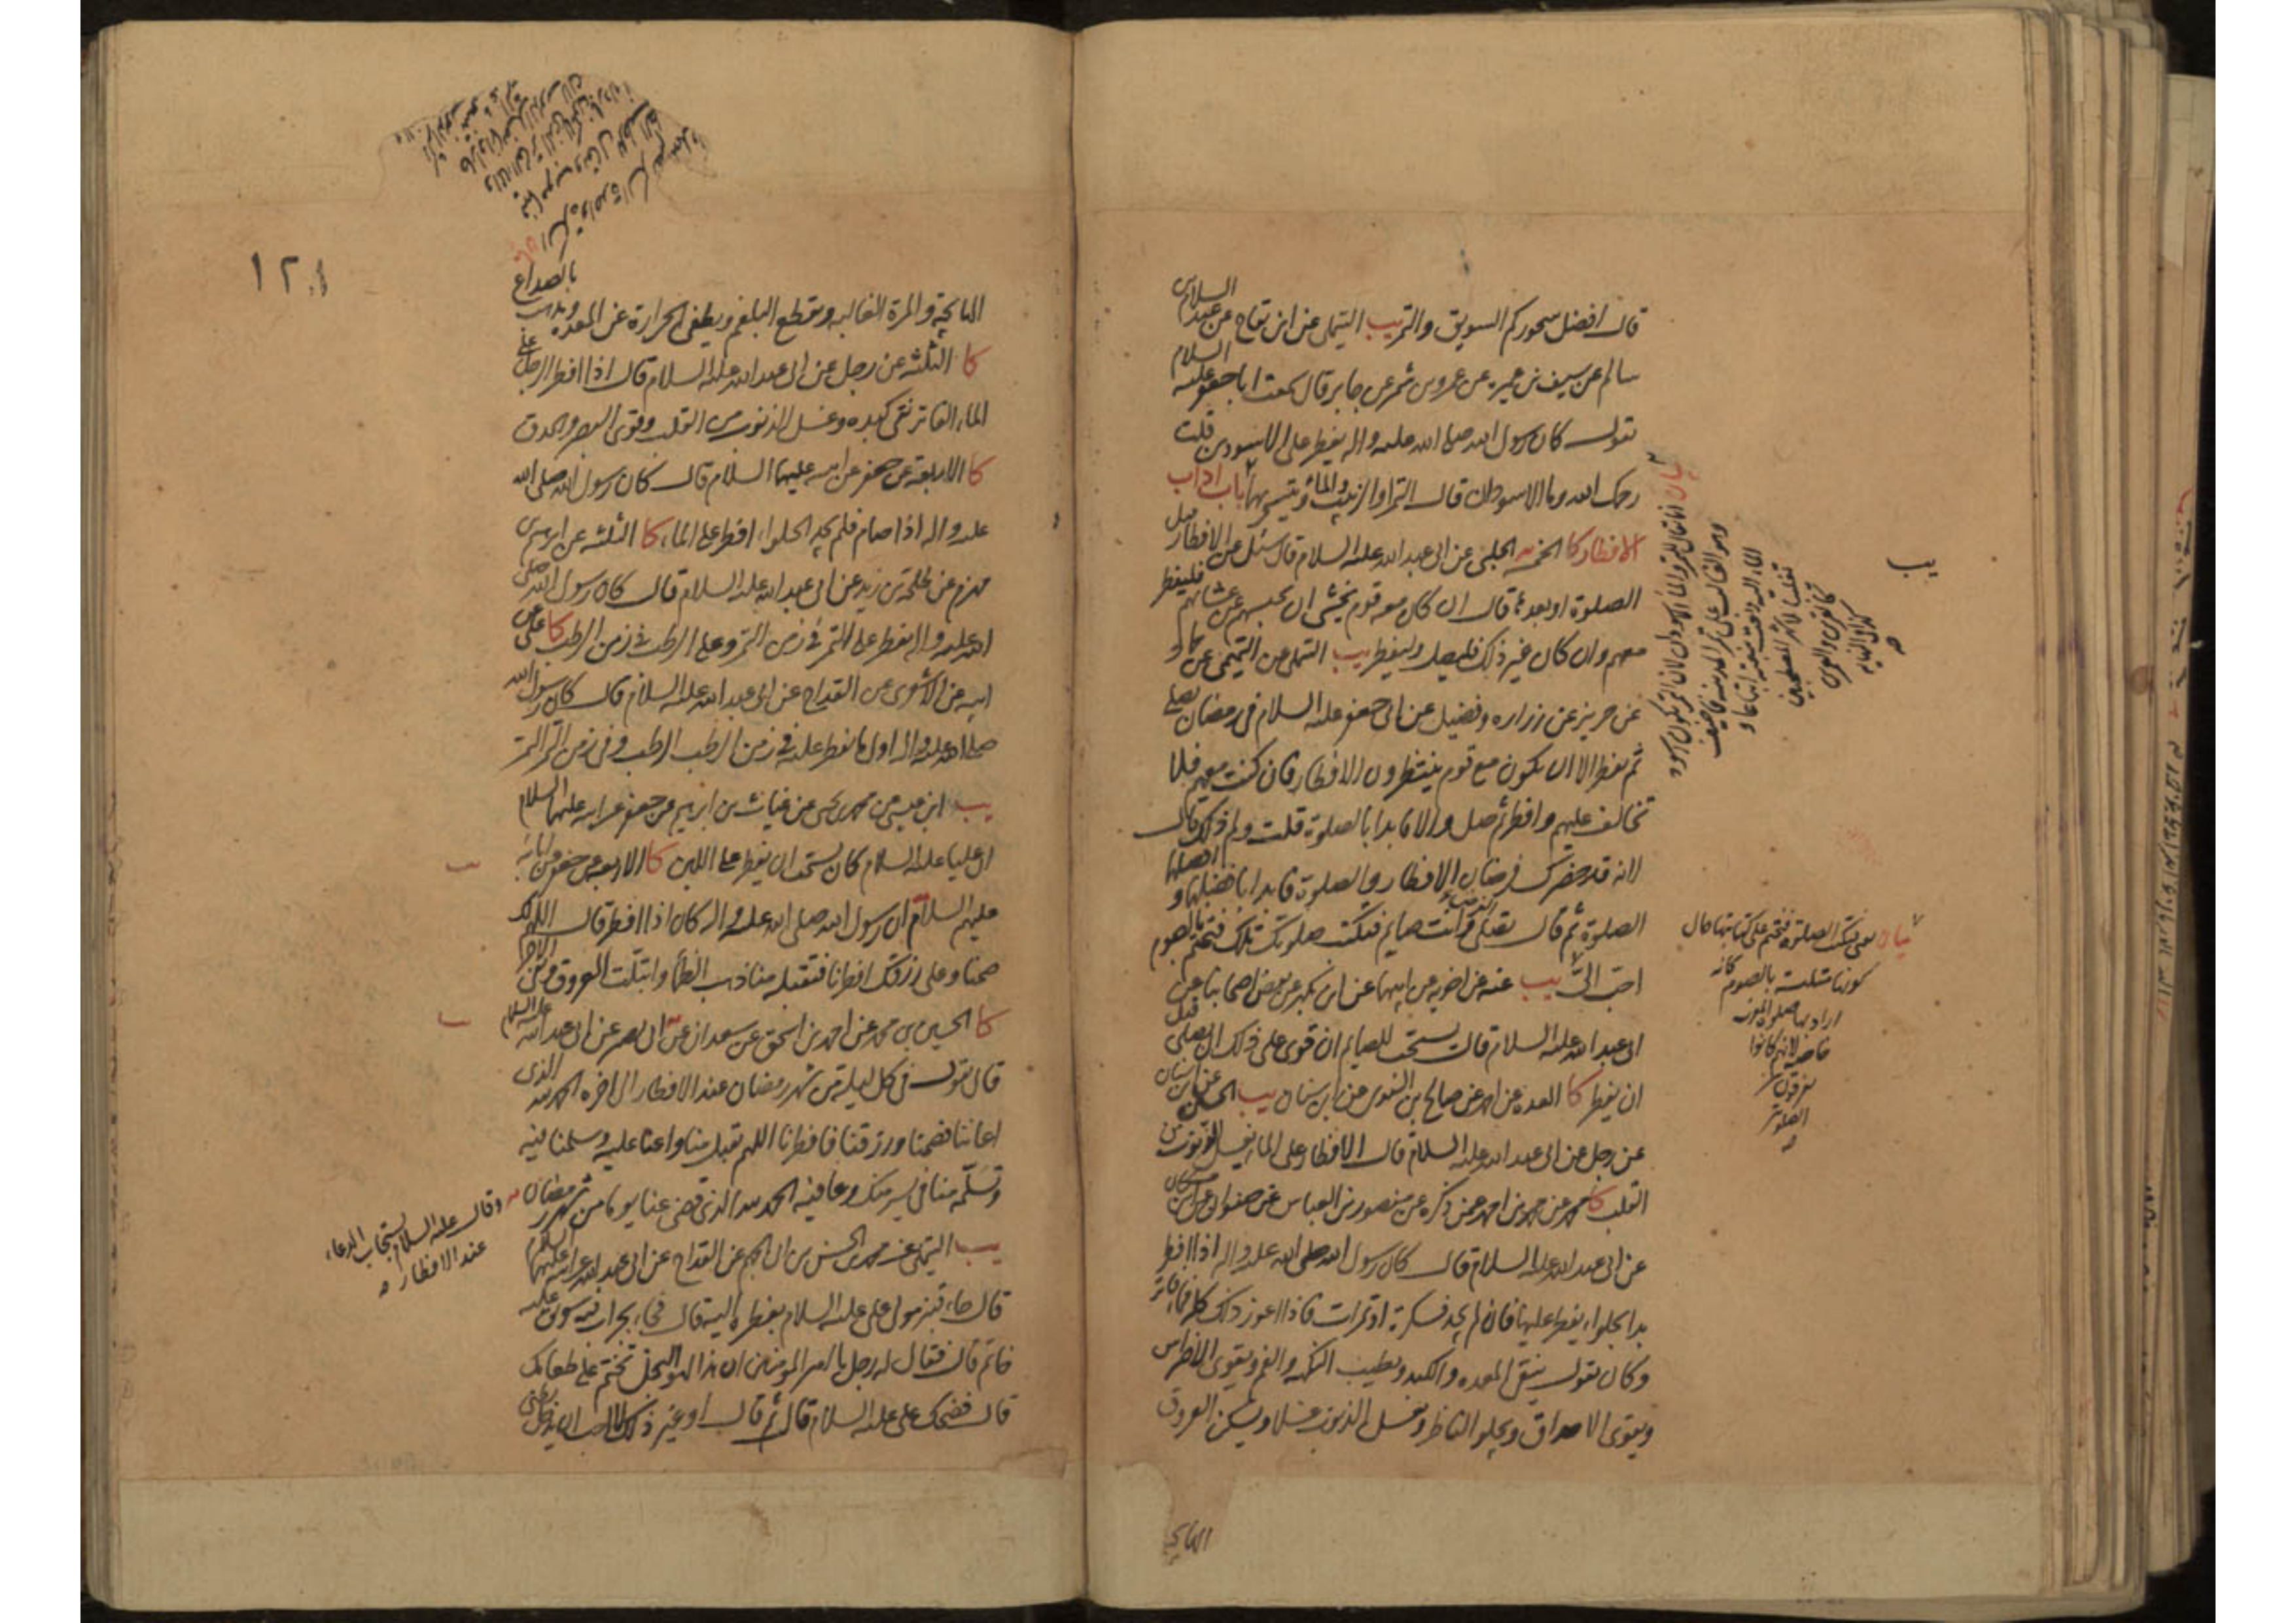 قال افضل سحوركم السويق والتمر يب التيملي عن ابن بقاح عن عبد السلام بن
سالم عن سيف بن عميره عن عمرو بن شمر عن جابر قال سمعت ابا جعفر عليه السلام
يقول كان رسول الله صلى الله عليه واله يفطر على الاسودين قلت
رحمك الله وما الاسودان قال التمر والماء او الزبيب والماء ويتسحر بهما باب اداب
الافطار كا الخمسه الحلبي عن ابي عبد الله عليه السلام قال سئل عن الافطار قبل
الصلوة او بعدها قال ان كان معه قوم يخشى ان يحبسهم عن عشائهم فليفطر
معهم وان كان غير ذلك فليصل وليفطر يب التيملي عن التميمي عن حماد
عن حريز عن زراره وفضيل عن ابي جعفر عليه السلام في رمضان تصلي
ثم تفطر الا ان تكون مع قوم ينتظرون الافطار فان كنت معهم فلا
تخالف عليهم وافطر ثم صل والا فابدا بالصلوة قلت ولم ذلك قال
لانه قد حضرك فرضان الافطار والصلوة فابدا بافضلهما وافضلهما
الصلوة ثم قال تصلي وانت صايم فتكتب صلوتك تلك فتختم بالصوم
احب الي يب عنه عن اخويه عن ابيهما عن ابن بكير عن بعض اصحابنا عن
ابي عبد الله عليه السلام قال يستحب للصايم ان قوي على ذلك ان يصلي قبل
ان يفطر كا العده عن احمد عن صالح بن السندي عن ابن سنان يب الحسين عن ابن سنان
عن رجل عن ابي عبد الله عليه السلام قال الافطار على الماء يغسل الذنوب من
القلب كا محمد عن محمد بن احمد عمن ذكره عن منصور بن العباس عن صفوان عن ابن مسكان
عن ابي عبد الله عليه السلام قال كان رسول الله صلى الله عليه واله اذا افطر
بدا بحلواء يفطر عليها فان لم يجد فسكرة او تمرات فاذا اعوز ذلك كله فماء فاتر
وكان يقول ينقي المعده والكبد ويطيب النكهه والفم ويقوي الاضراس
ويقوي الاحداق ويجلو الناظر ويغسل الذنوب غسلا ويسكن العروق
الهايجة
بيان
يب
بيان يعني تكتب الصلوة فتختم على كتابتها حال
كونها متلبسة بالصوم كانه
اراد بها صلوة المغرب
خاصه لانهم كانوا
يفرقون
الصلوتين
١٢١
الهايجة والمرة الغالبه ويقطع البلغم ويطفي الحرارة عن المعده ويذهب بالصداع
كا الثلثه عن رجل عن ابي عبد الله عليه السلام قال اذا افطر الرجل على
الماء الفاتر نقى كبده وغسل الذنوب من القلب وقوى البصر والحدق
كا الاربعة عن جعفر عن ابيه عليهما السلام قال كان رسول الله صلى الله
عليه واله اذا صام فلم يجد الحلواء افطر على الماء كا الثلثه عن ابرهيم بن
مهزم عن طلحة بن زيد عن ابي عبد الله عليه السلام قال كان رسول الله صلى
الله عليه واله يفطر على التمر في زمن التمر وعلى الرطب في زمن الرطب كا علي عن
ابيه عن الاشعري عن القداح عن ابي عبد الله عليه السلام قال كان رسول الله
صلى الله عليه واله اول ما يفطر عليه في زمن الرطب الرطب وفي زمن التمر التمر
يب ابن عيسى عن محمد بن يحيى عن غياث بن ابرهيم عن جعفر عن ابيه عليهما السلام
ان عليا عليه السلام كان يستحب ان يفطر على اللبن كا الاربعه عن جعفر عن ابائه
عليهم السلام ان رسول الله صلى الله عليه واله كان اذا افطر قال اللهم لك
صمنا وعلى رزقك افطرنا فتقبله منا ذهب الظمأ وابتلت العروق وبقي الاجر
كا الحسين بن محمد عن احمد بن اسحق عن سعدان عن ابي بصير عن ابي عبد الله عليه السلام
قال تقول في كل ليلة من شهر رمضان عند الافطار الى اخره الحمد لله الذي
اعاننا فصمنا ورزقنا فافطرنا اللهم تقبل منا واعنا عليه وسلمنا فيه
وتسلمه منا في يسر منك وعافيه الحمد لله الذي قضى عنا يوما من شهر رمضان
وقال عليه السلام يستجاب الدعاء
عند الافطار
يب التيملي عن محمد بن الحسن بن ابي الجهم عن القداح عن ابي عبد الله عن ابيه عليهما السلام
قال جاء قنبر مولى علي عليه السلام بفطره اليه قال فجاء بجراب فيه سويق عليه
خاتم قال فقال له رجل يا امير المؤمنين ان هذا لهو البخل تختم على طعامك
قال فضحك علي عليه السلام قال ثم قال او غير ذلك لا احب ان يدخل بطني